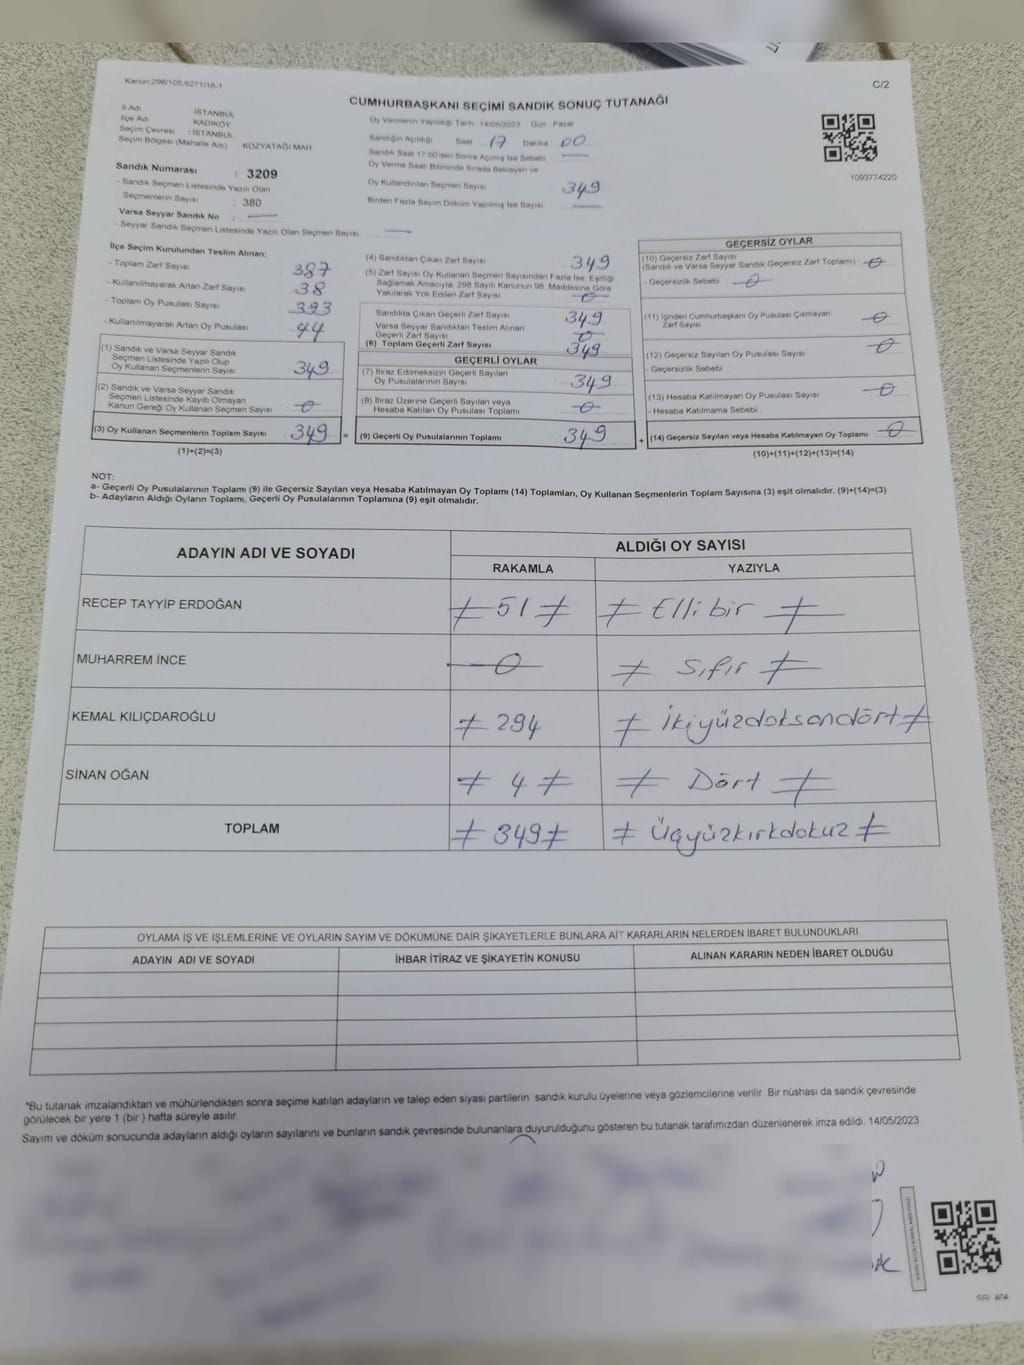 Kanun:298/105;6271/18-1
C/2
CUMHURBAŞKANI SEÇİMİ SANDIK SONUÇ TUTANAĞI
İl Adı İSTANBUL
İlçe Adı KADIKÖY
Seçim Çevresi : İSTANBUL
Seçim Bölgesi (Mahalle Adı) KOZYATAĞI MAH
Sandık Numarası : 3209
- Sandık Seçmen Listesinde Yazılı Olan
Seçmenlerin Sayısı : 380
Varsa Seyyar Sandık No :
- Seyyar Sandık Seçmen Listesinde Yazılı Olan Seçmen Sayısı
Oy Vermenin Yapıldığı Tarih 14/05/2023 Gün : Pazar
Sandığın Açıldığı Saat 17 Dakika 00
Sandık Saat 17:00'den Sonra Açılmış İse Sebebi
Oy Verme Saati Bitiminde Sırada Bekleyen ve
Oy Kullandırılan Seçmen Sayısı 349
Birden Fazla Sayım Döküm Yapılmış İse Sayısı
1093774220
İlçe Seçim Kurulundan Teslim Alınan;
- Toplam Zarf Sayısı 387
- Kullanılmayarak Artan Zarf Sayısı 38
- Toplam Oy Pusulası Sayısı 393
- Kullanılmayarak Artan Oy Pusulası 44
(1) Sandık ve Varsa Seyyar Sandık
Seçmen Listesinde Yazılı Olup
Oy Kullanan Seçmenlerin Sayısı 349
(2) Sandık ve Varsa Seyyar Sandık
Seçmen Listesinde Kayıtlı Olmayan
Kanun Gereği Oy Kullanan Seçmen Sayısı 0
(3) Oy Kullanan Seçmenlerin Toplam Sayısı 349 =
(1)+(2)=(3)
(4) Sandıktan Çıkan Zarf Sayısı 349
(5) Zarf Sayısı Oy Kullanan Seçmen Sayısından Fazla İse, Eşitliği
Sağlamak Amacıyla, 298 Sayılı Kanunun 98. Maddesine Göre
Yakılarak Yok Edilen Zarf Sayısı 0
Sandıkta Çıkan Geçerli Zarf Sayısı 349
Varsa Seyyar Sandıktan Teslim Alınan
Geçerli Zarf Sayısı 0
(6) Toplam Geçerli Zarf Sayısı 349
GEÇERLİ OYLAR
(7) İtiraz Edilmeksizin Geçerli Sayılan
Oy Pusulalarının Sayısı 349
(8) İtiraz Üzerine Geçerli Sayılan veya
Hesaba Katılan Oy Pusulası Toplamı 0
(9) Geçerli Oy Pusulalarının Toplamı 349 +
GEÇERSİZ OYLAR
(10) Geçersiz Zarf Sayısı
(Sandık ve Varsa Seyyar Sandık Geçersiz Zarf Toplamı) 0
- Geçersizlik Sebebi 0
(11) İçinden Cumhurbaşkanı Oy Pusulası Çıkmayan
Zarf Sayısı 0
(12) Geçersiz Sayılan Oy Pusulası Sayısı 0
- Geçersizlik Sebebi
(13) Hesaba Katılmayan Oy Pusulası Sayısı 0
- Hesaba Katılmama Sebebi :
(14) Geçersiz Sayılan veya Hesaba Katılmayan Oy Toplamı 0
(10)+(11)+(12)+(13)=(14)
NOT:
a- Geçerli Oy Pusulalarının Toplamı (9) ile Geçersiz Sayılan veya Hesaba Katılmayan Oy Toplamı (14) Toplamları, Oy Kullanan Seçmenlerin Toplam Sayısına (3) eşit olmalıdır. (9)+(14)=(3)
b- Adayların Aldığı Oyların Toplamı, Geçerli Oy Pusulalarının Toplamına (9) eşit olmalıdır.
ADAYIN ADI VE SOYADI ALDIĞI OY SAYISI
RAKAMLA YAZIYLA
RECEP TAYYİP ERDOĞAN ≠ 51 ≠ ≠ Ellibir ≠
MUHARREM İNCE 0 ≠ Sıfır ≠
KEMAL KILIÇDAROĞLU ≠ 294 ≠ İkiyüzdoksandört ≠
SİNAN OĞAN ≠ 4 ≠ ≠ Dört ≠
TOPLAM ≠ 349 ≠ ≠ Üçyüzkırkdokuz ≠
OYLAMA İŞ VE İŞLEMLERİNE VE OYLARIN SAYIM VE DÖKÜMÜNE DAİR ŞİKAYETLERLE BUNLARA AİT KARARLARIN NELERDEN İBARET BULUNDUKLARI
ADAYIN ADI VE SOYADI İHBAR İTİRAZ VE ŞİKAYETİN KONUSU ALINAN KARARIN NEDEN İBARET OLDUĞU
*Bu tutanak imzalandıktan ve mühürlendikten sonra seçime katılan adayların ve talep eden siyasi partilerin sandık kurulu üyelerine veya gözlemcilerine verilir. Bir nüshası da sandık çevresinde
görülecek bir yere 1 (bir ) hafta süreyle asılır.
Sayım ve döküm sonucunda adayların aldığı oyların sayılarını ve bunların sandık çevresinde bulunanlara duyurulduğunu gösteren bu tutanak tarafımızdan düzenlenerek imza edildi. 14/05/2023